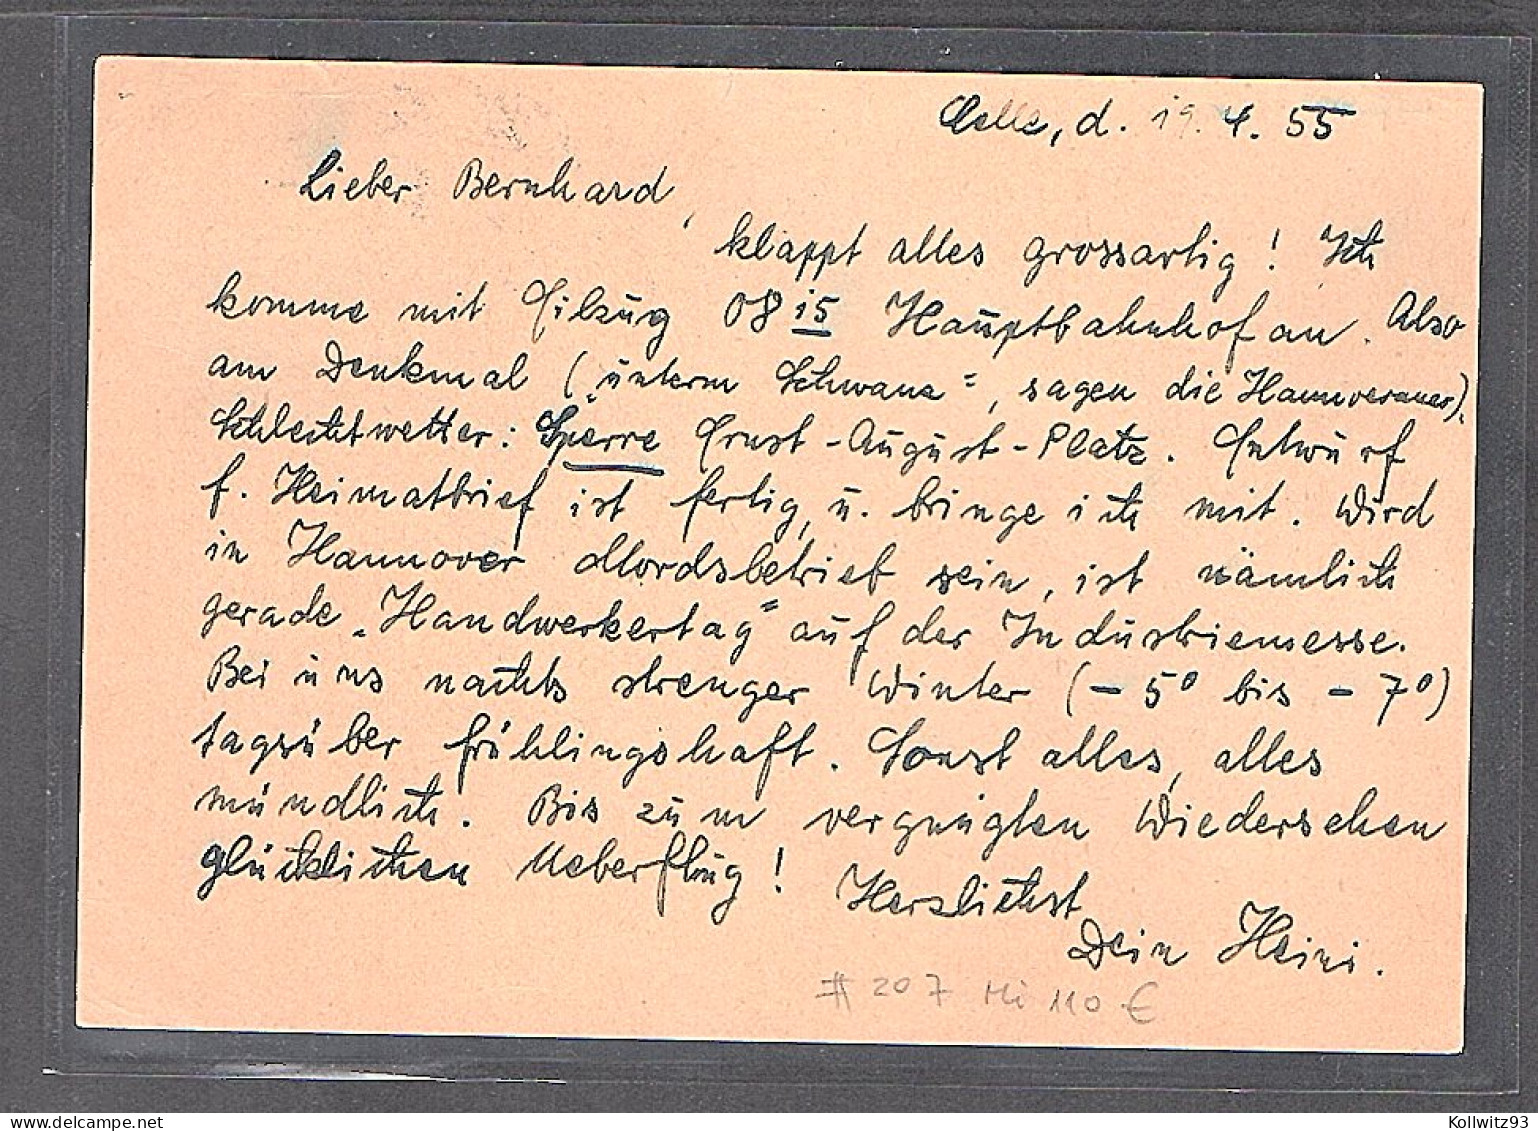 Celle, d. 19. 4. 55
Lieber Bernhard,
klappt alles grossartig! Ich
komme mit Eilzug 08 15 Hauptbahnhof an. Also
am Denkmal („unterm Schwanz“, sagen die Hannoveraner).
Schlechtwetter: Sperre Ernst-August-Platz. Entwurf
f. Heimatbrief ist fertig, u. bringe ich mit. Wird
in Hannover Mordsbetrieb sein, ist nämlich
gerade „Handwerkertag“ auf der Industriemesse.
Bei uns nachts strenger Winter (- 5° bis - 7°)
tagsüber frühlingshaft. Sonst alles, alles
mündlich. Bis zum vergnügten Wiedersehen
glücklichen Ueberflug! Herzlichst
Dein Heini.
# 207 Mi 110 €
Kollwitz93